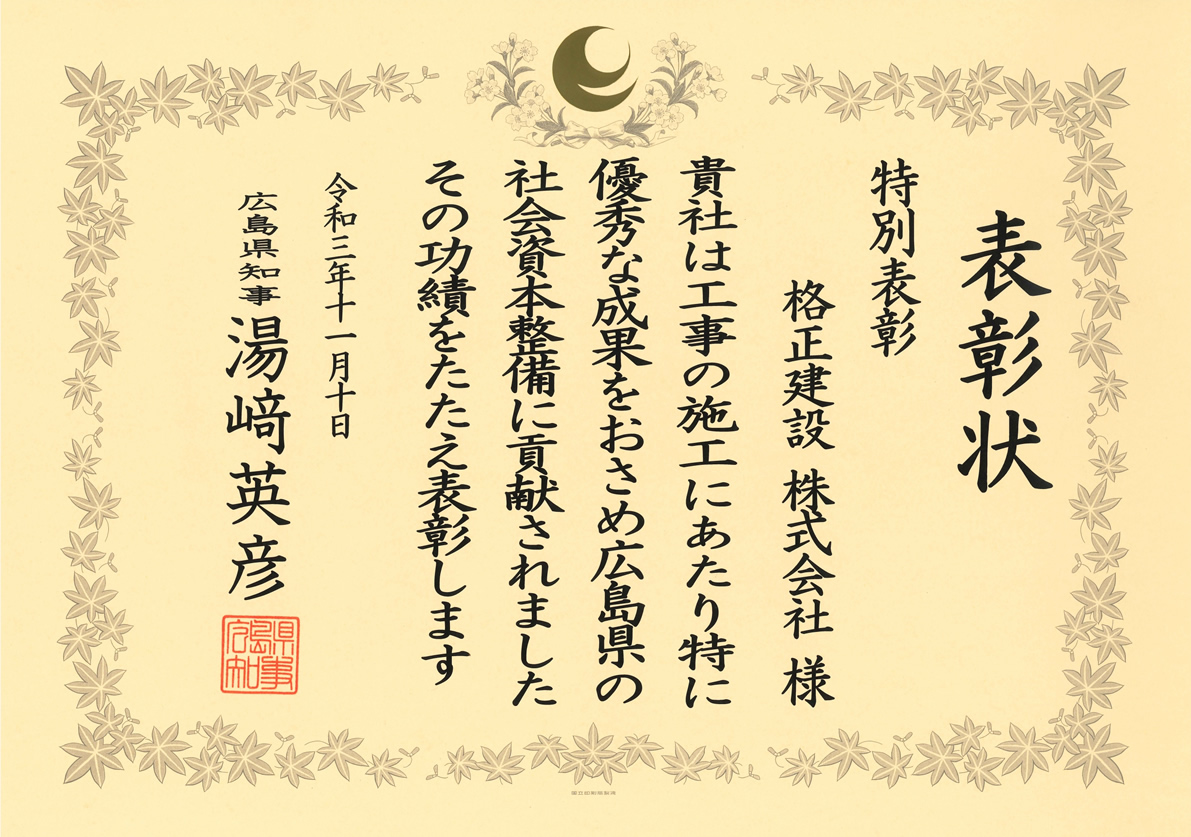 表彰状
特別表彰
格正建設 株式会社 様
貴社は工事の施工にあたり特に
優秀な成果をおさめ広島県の
社会資本整備に貢献されました
その功績をたたえ表彰します
令和三年十一月十日
広島県知事 湯﨑英彦